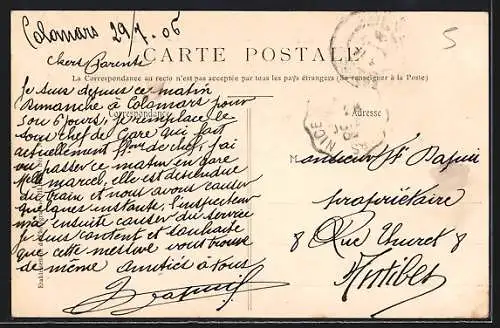 Colomars 29/7. 06
5
CARTE POSTALE
Chers Parents
La Correspondance au recto n'est pas acceptée par tous les pays étrangers (Se renseigner à la Poste)
Correspondance
Adresse
Je suis depuis ce matin
Dimanche à Colomars pour
5 ou 6 jours, je remplace le
sous chef de gare qui fait
actuellement de chef, j'ai
vu passer ce matin en gare
Melle marcel, elle est descendue
du train et nous avons causer
quelques instants, l'inspecteur
m'a ensuite causer du service
Je suis content et souhaite
que cette missive vous trouve
de même Amitiés à Vous
NICE
Monsieur
propriétaire
8 Rue 8
Antibes